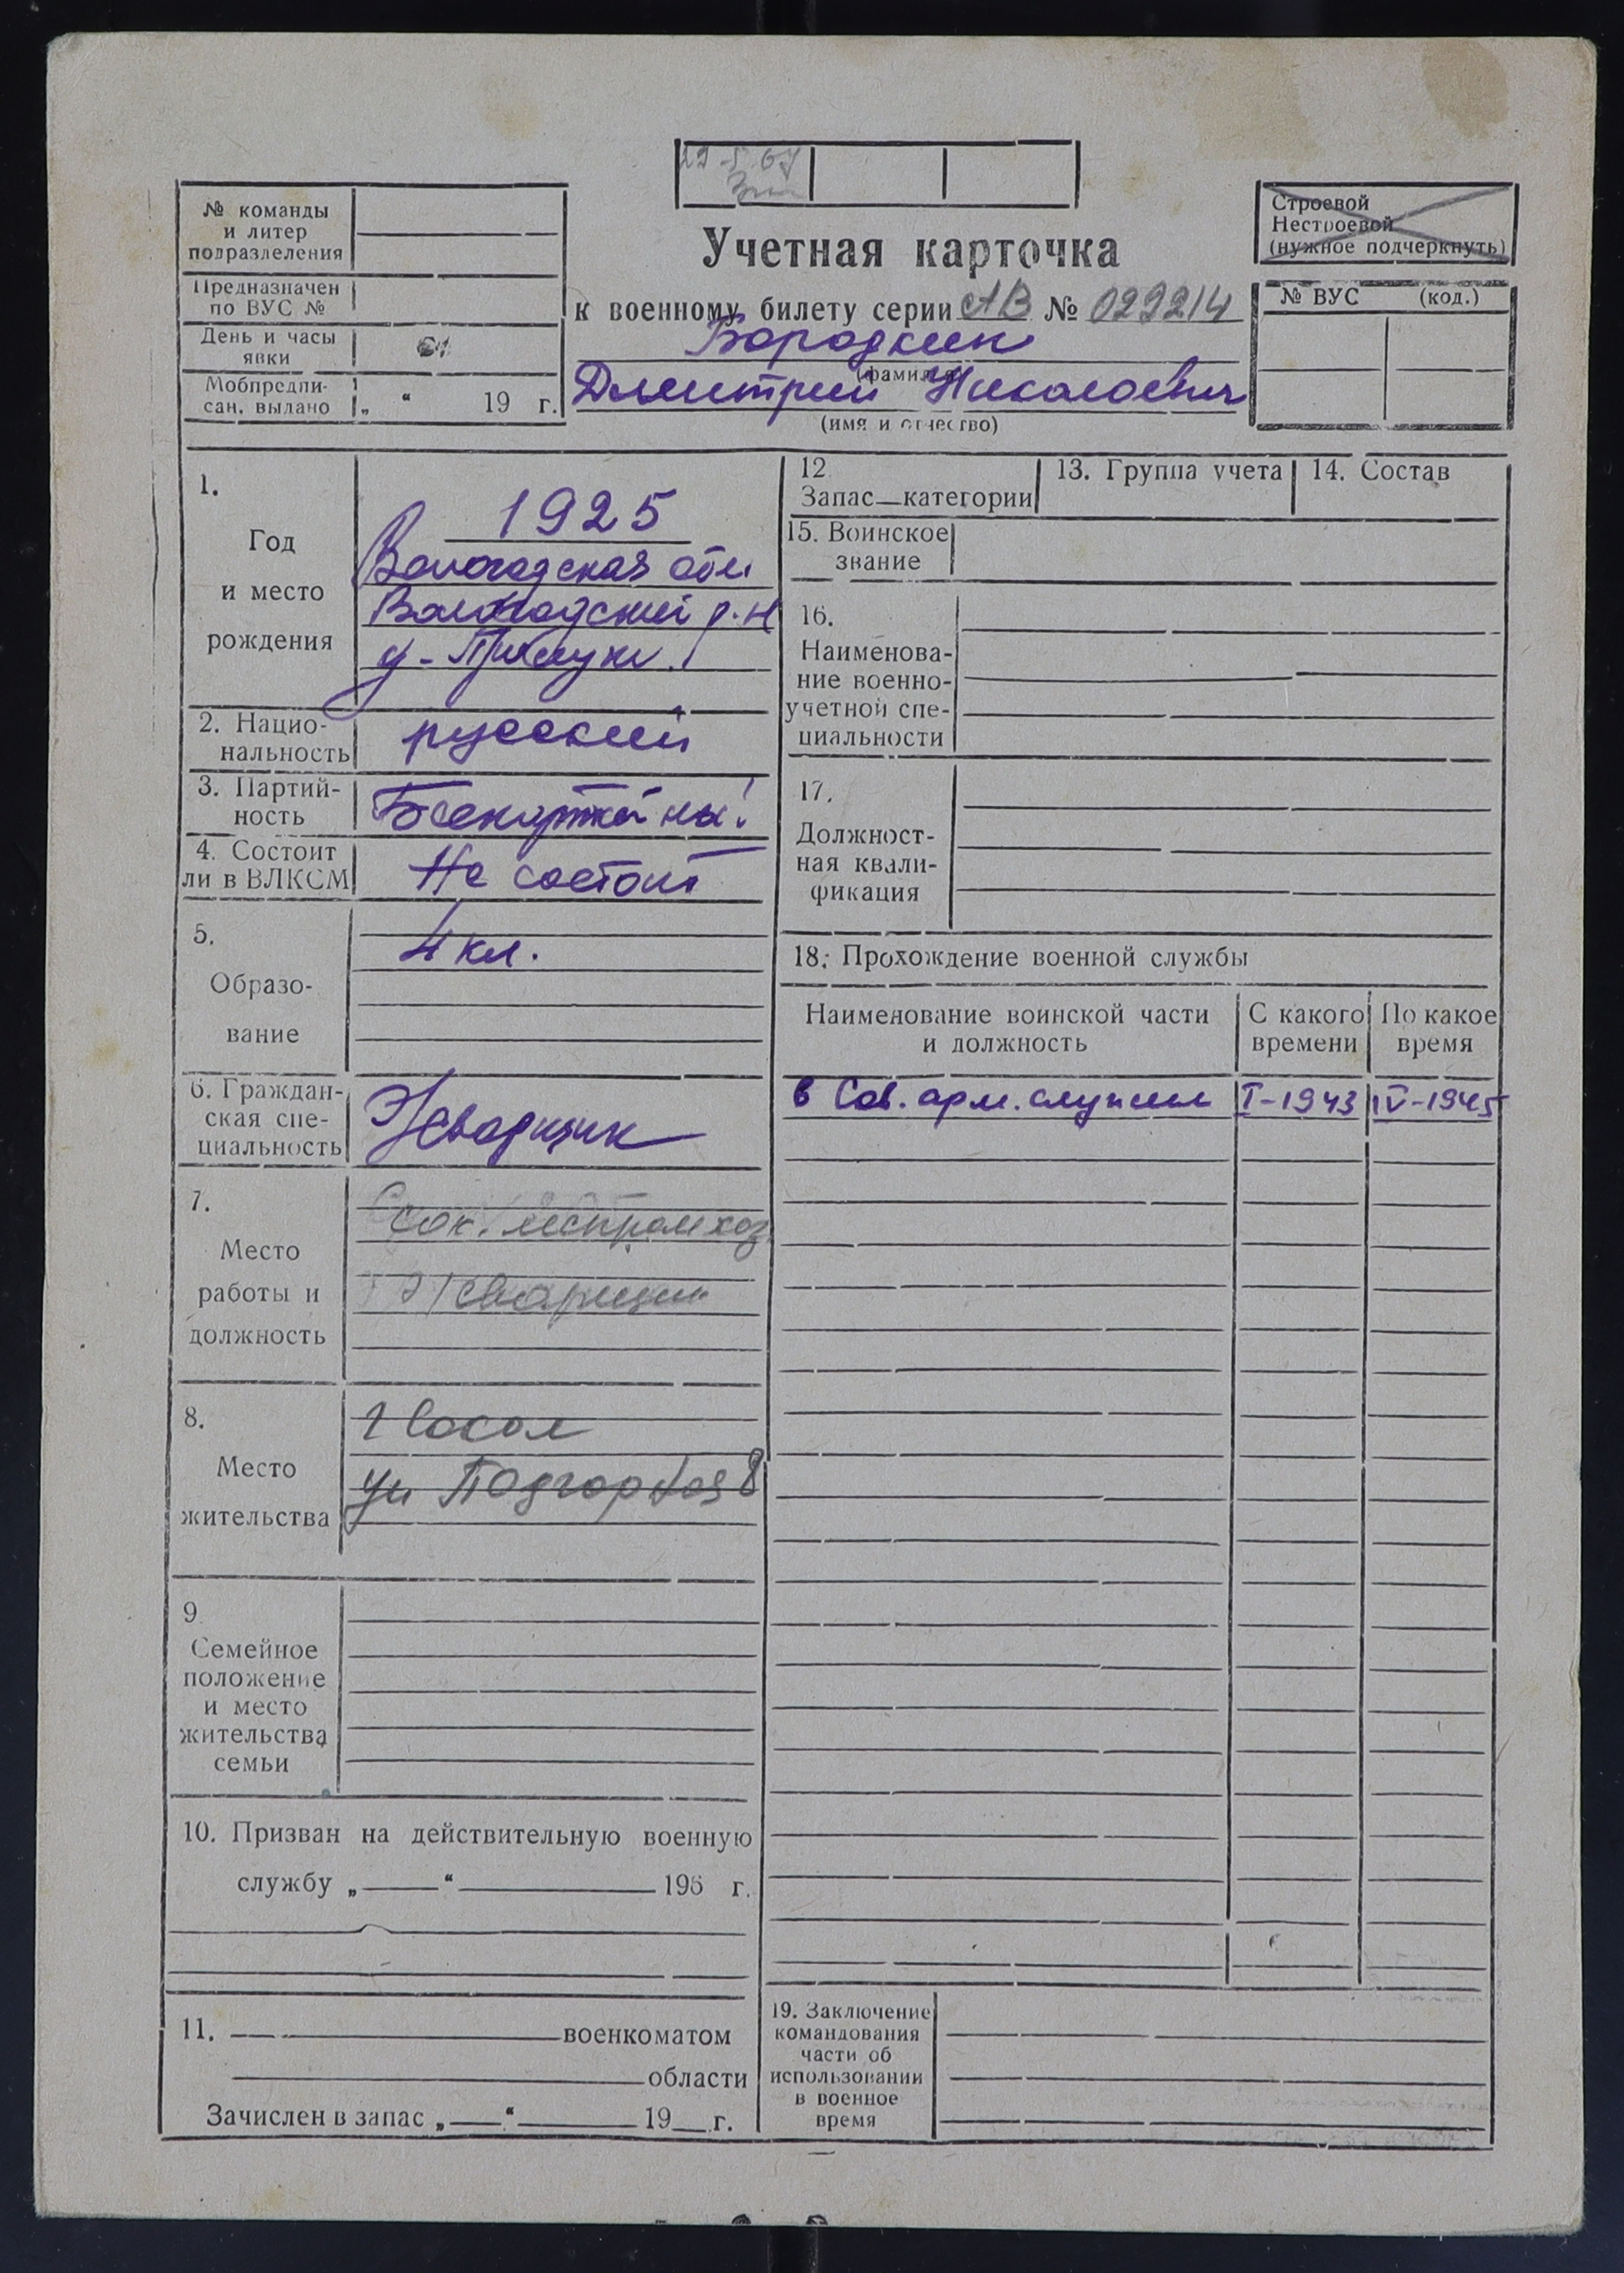 22 5 67
№ команды
и литер
подразделения
Предназначен
по ВУС №
День и часы
явки
Мобпредпи-
сан. выдано „ “ 19 г.
Учетная карточка
к военному билету серии АВ № 029214
Бородкин
(фамилия)
Дмитрий Николаевич
(имя и отчество)
Строевой
Нестроевой
(нужное подчеркнуть)
№ ВУС (код.)
1.
Год
и место
рождения
1925
Вологодская обл
Вологодский р-н
д-
2. Нацио-
нальность
русский
3. Партий-
ность
Беспартейный
4. Состоит
ли в ВЛКСМ
Не состоит
5.
Образо-
вание
4 кл.
6. Граждан-
ская спе-
циальность
7.
Место
работы и
должность
Сок. леспромхоз
8.
Место
жительства
г Сокол
ул Подгорная 8
9
Семейное
положение
и место
жительства
семьи
10. Призван на действительную военную
службу „ “ 196 г.
11. военкоматом
области
Зачислен в запас „ “ 19 г.
12
Запас—категории
13. Группа учета
14. Состав
15. Воинское
звание
16.
Наименова-
ние военно-
учетной спе-
циальности
17.
Должност-
ная квали-
фикация
18. Прохождение военной службы
Наименование воинской части
и должность
С какого
времени
По какое
время
в Сов. арм. служил I-1943 IV-1945
19. Заключение
командования
части об
использовании
в военное
время